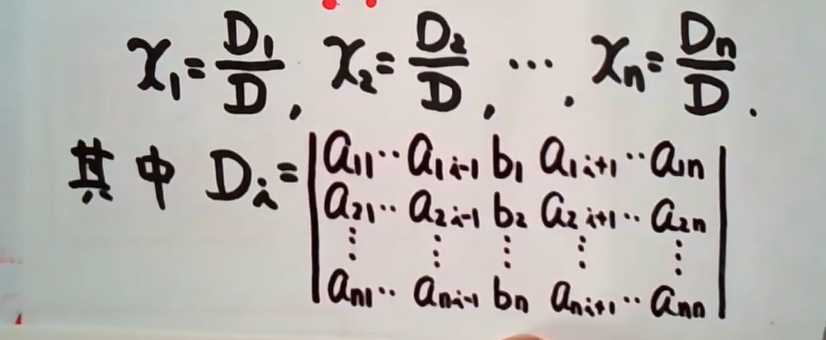 x₁ = D₁/D, x₂ = D₂/D, ⋯, xₙ = Dₙ/D.
其中 Dᵢ = | a₁₁ ‥ a₁ᵢ₋₁ b₁ a₁ᵢ₊₁ ‥ a₁ₙ |
| a₂₁ ‥ a₂ᵢ₋₁ b₂ a₂ᵢ₊₁ ‥ a₂ₙ |
| ⋮ ⋮ ⋮ ⋮ ⋮ |
| aₙ₁ ‥ aₙᵢ₋₁ bₙ aₙᵢ₊₁ ‥ aₙₙ |